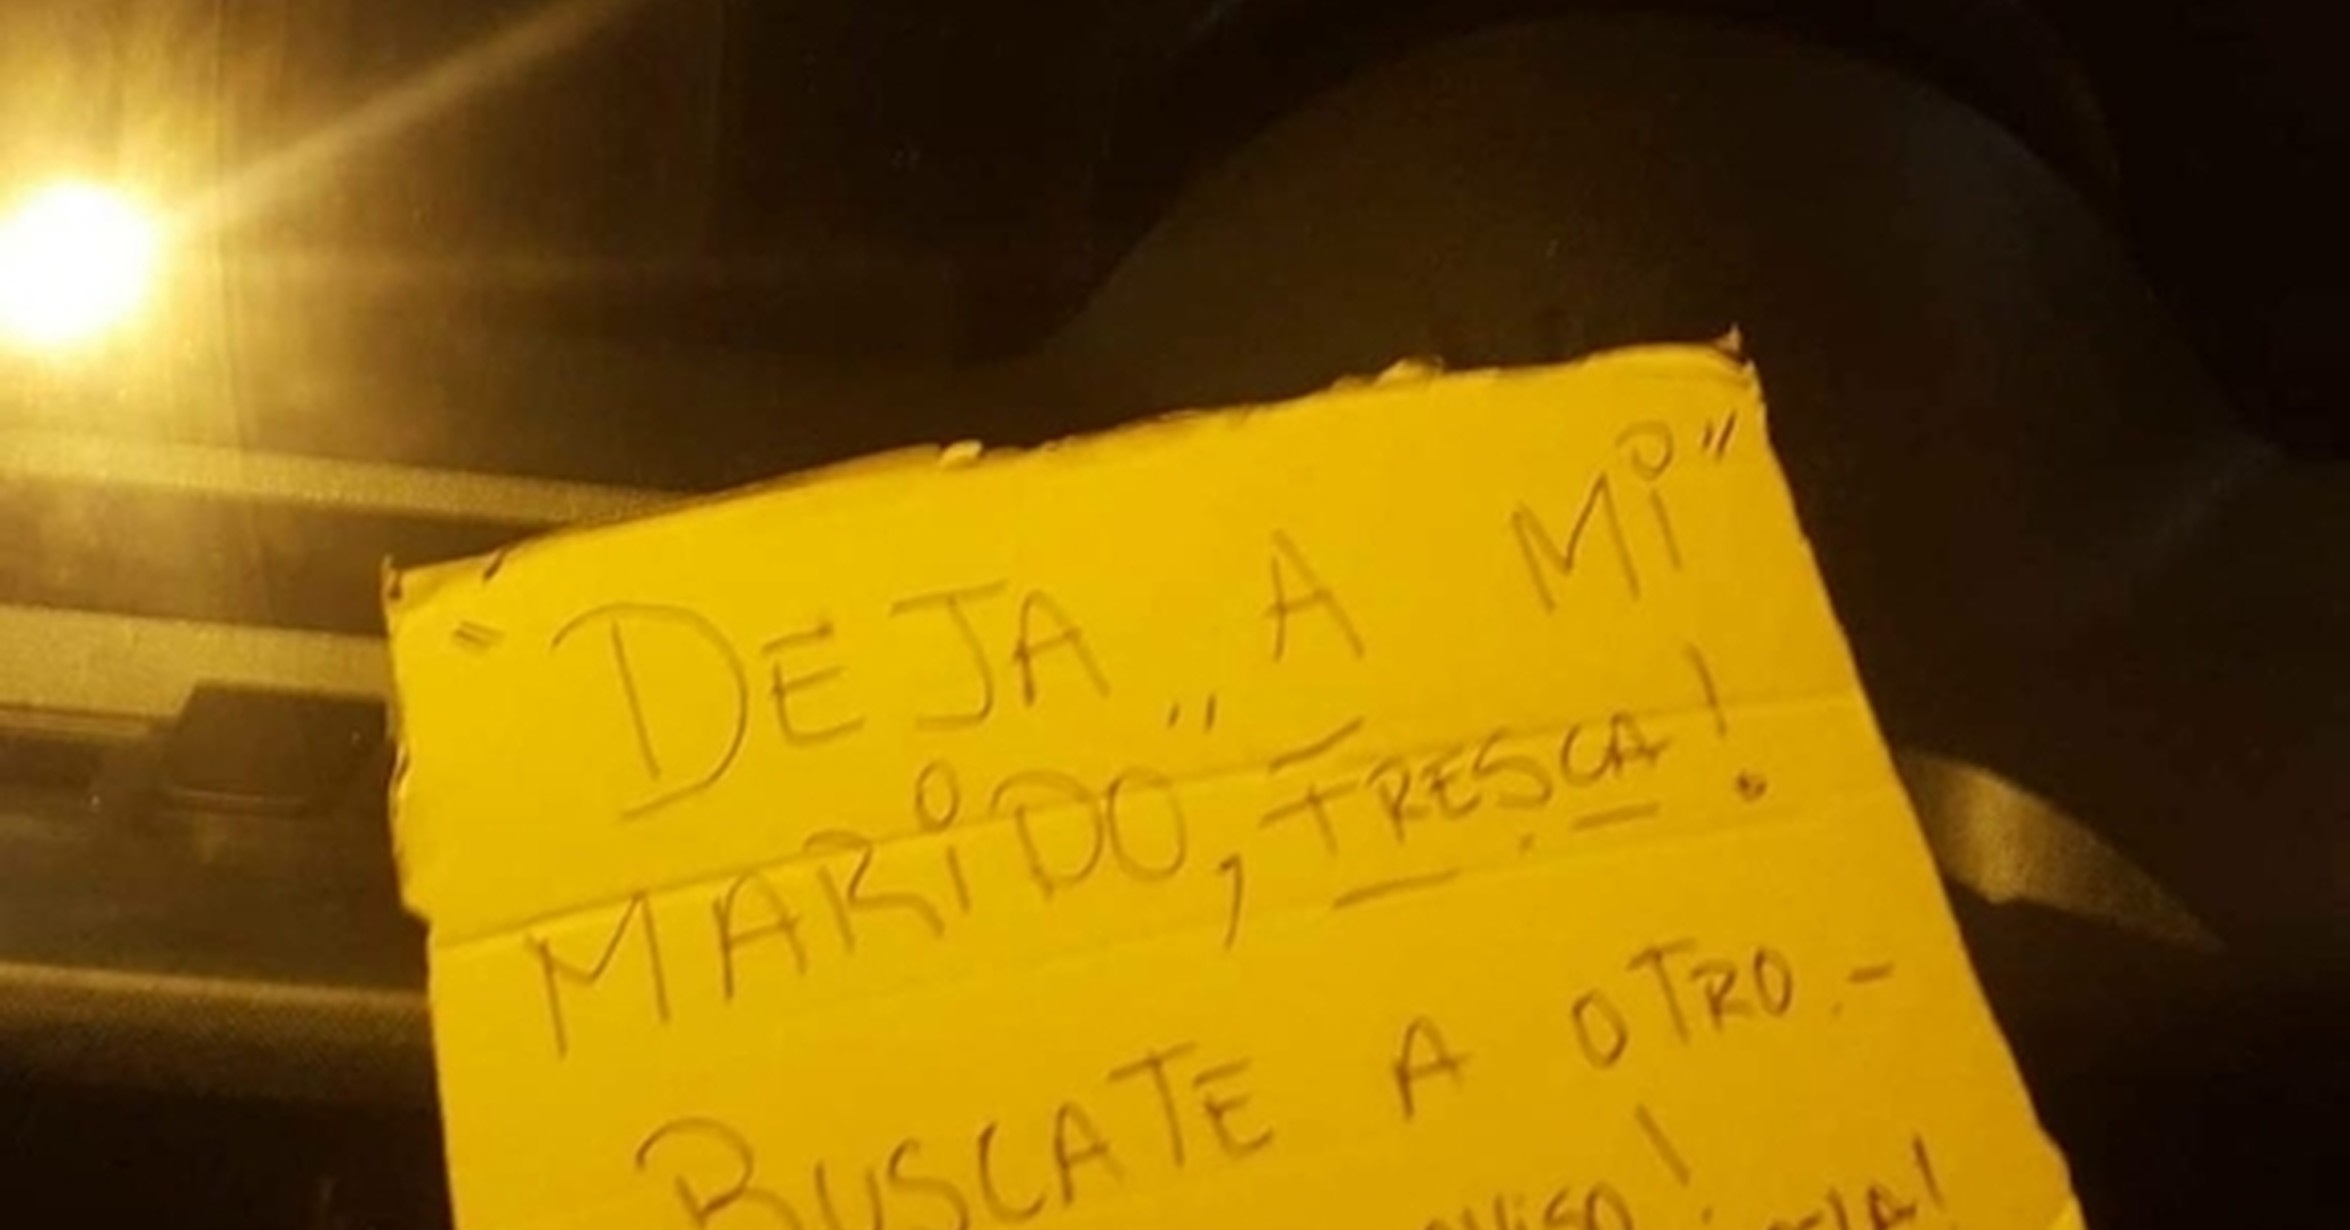 "DEJA A Mi"
MARiDO, "FRESCA!
BUSCATE A OTRO.-